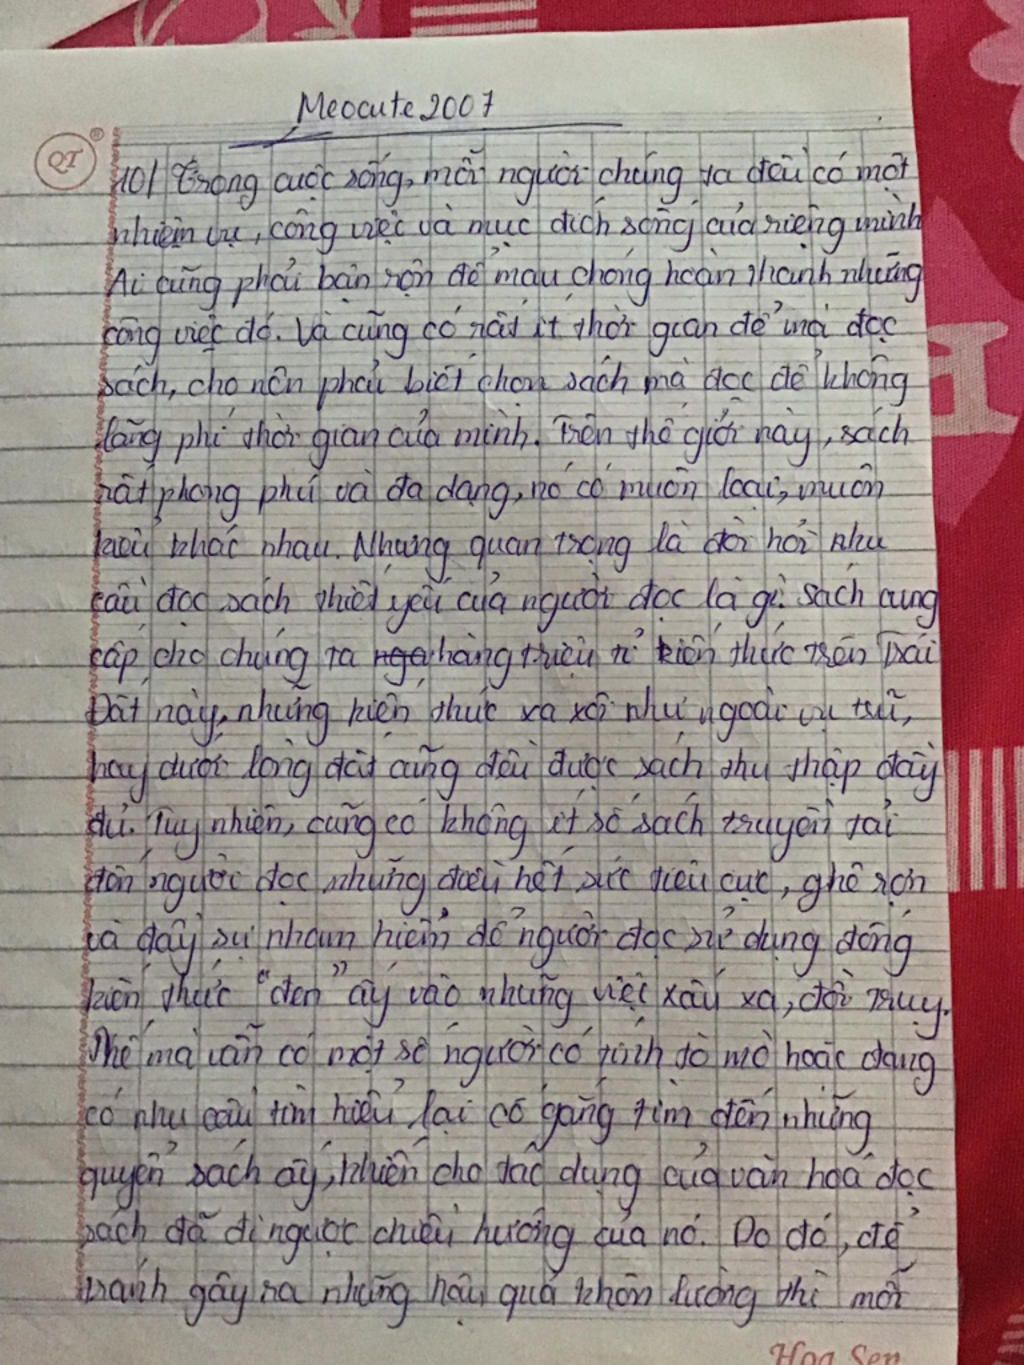 Meocute2007
QT ®
10/ Trong cuộc sống, mỗi người chúng ta đều có một
nhiệm vụ, công việc và mục đích sống của riêng mình
Ai cũng phải bận rộn để mau chóng hoàn thành những
công việc đó. Và cũng có rất ít thời gian để mà đọc
sách, cho nên phải biết chọn sách mà đọc để không
lãng phí thời gian của mình. Trên thế giới này, sách
rất phong phú và đa dạng, nó có muôn loại, muôn
kiểu khác nhau. Nhưng quan trọng là đòi hỏi nhu
cầu đọc sách thiết yếu của người đọc là gì. Sách cung
cấp cho chúng ta hàng triệu tỉ kiến thức trên Trái
Đất này, những kiến thức xa xôi như ngoài vũ trũ,
hay dưới lòng đất cũng đều được sách thu thập đầy
đủ. Tuy nhiên, cũng có không ít số sách truyền tải
đến người đọc những điều hết sức tiêu cực, ghê rợn
và đầy sự nham hiểm để người đọc sử dụng đống
kiến thức "đen" ấy vào những việc xấu xa, đồi truỵ.
Thế mà vẫn có một số người có tính tò mò hoặc đang
có nhu cầu tìm hiểu lại cố gắng tìm đến những
quyển sách ấy, khiến cho tác dụng của văn hoá đọc
sách đã đi ngược chiều hướng của nó. Do đó, để
tránh gây ra những hậu quả khôn lường thì mỗi
Hoa Sen